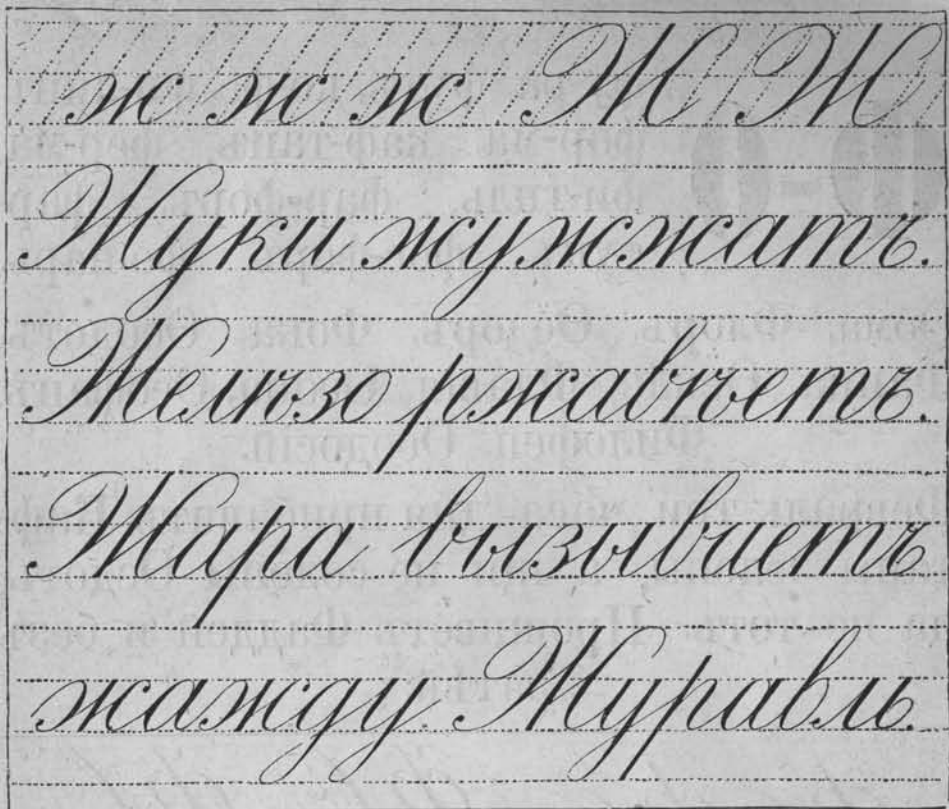 ж ж ж Ж Ж
Жуки жужжатъ.
Желѣзо ржавѣетъ.
Жара вызываетъ
жажду. Журавль.